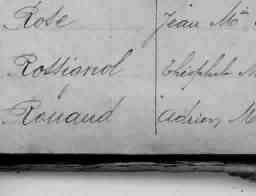 Rose Jean Mie
Rossignol Théophile M
Rouaud Adrien M